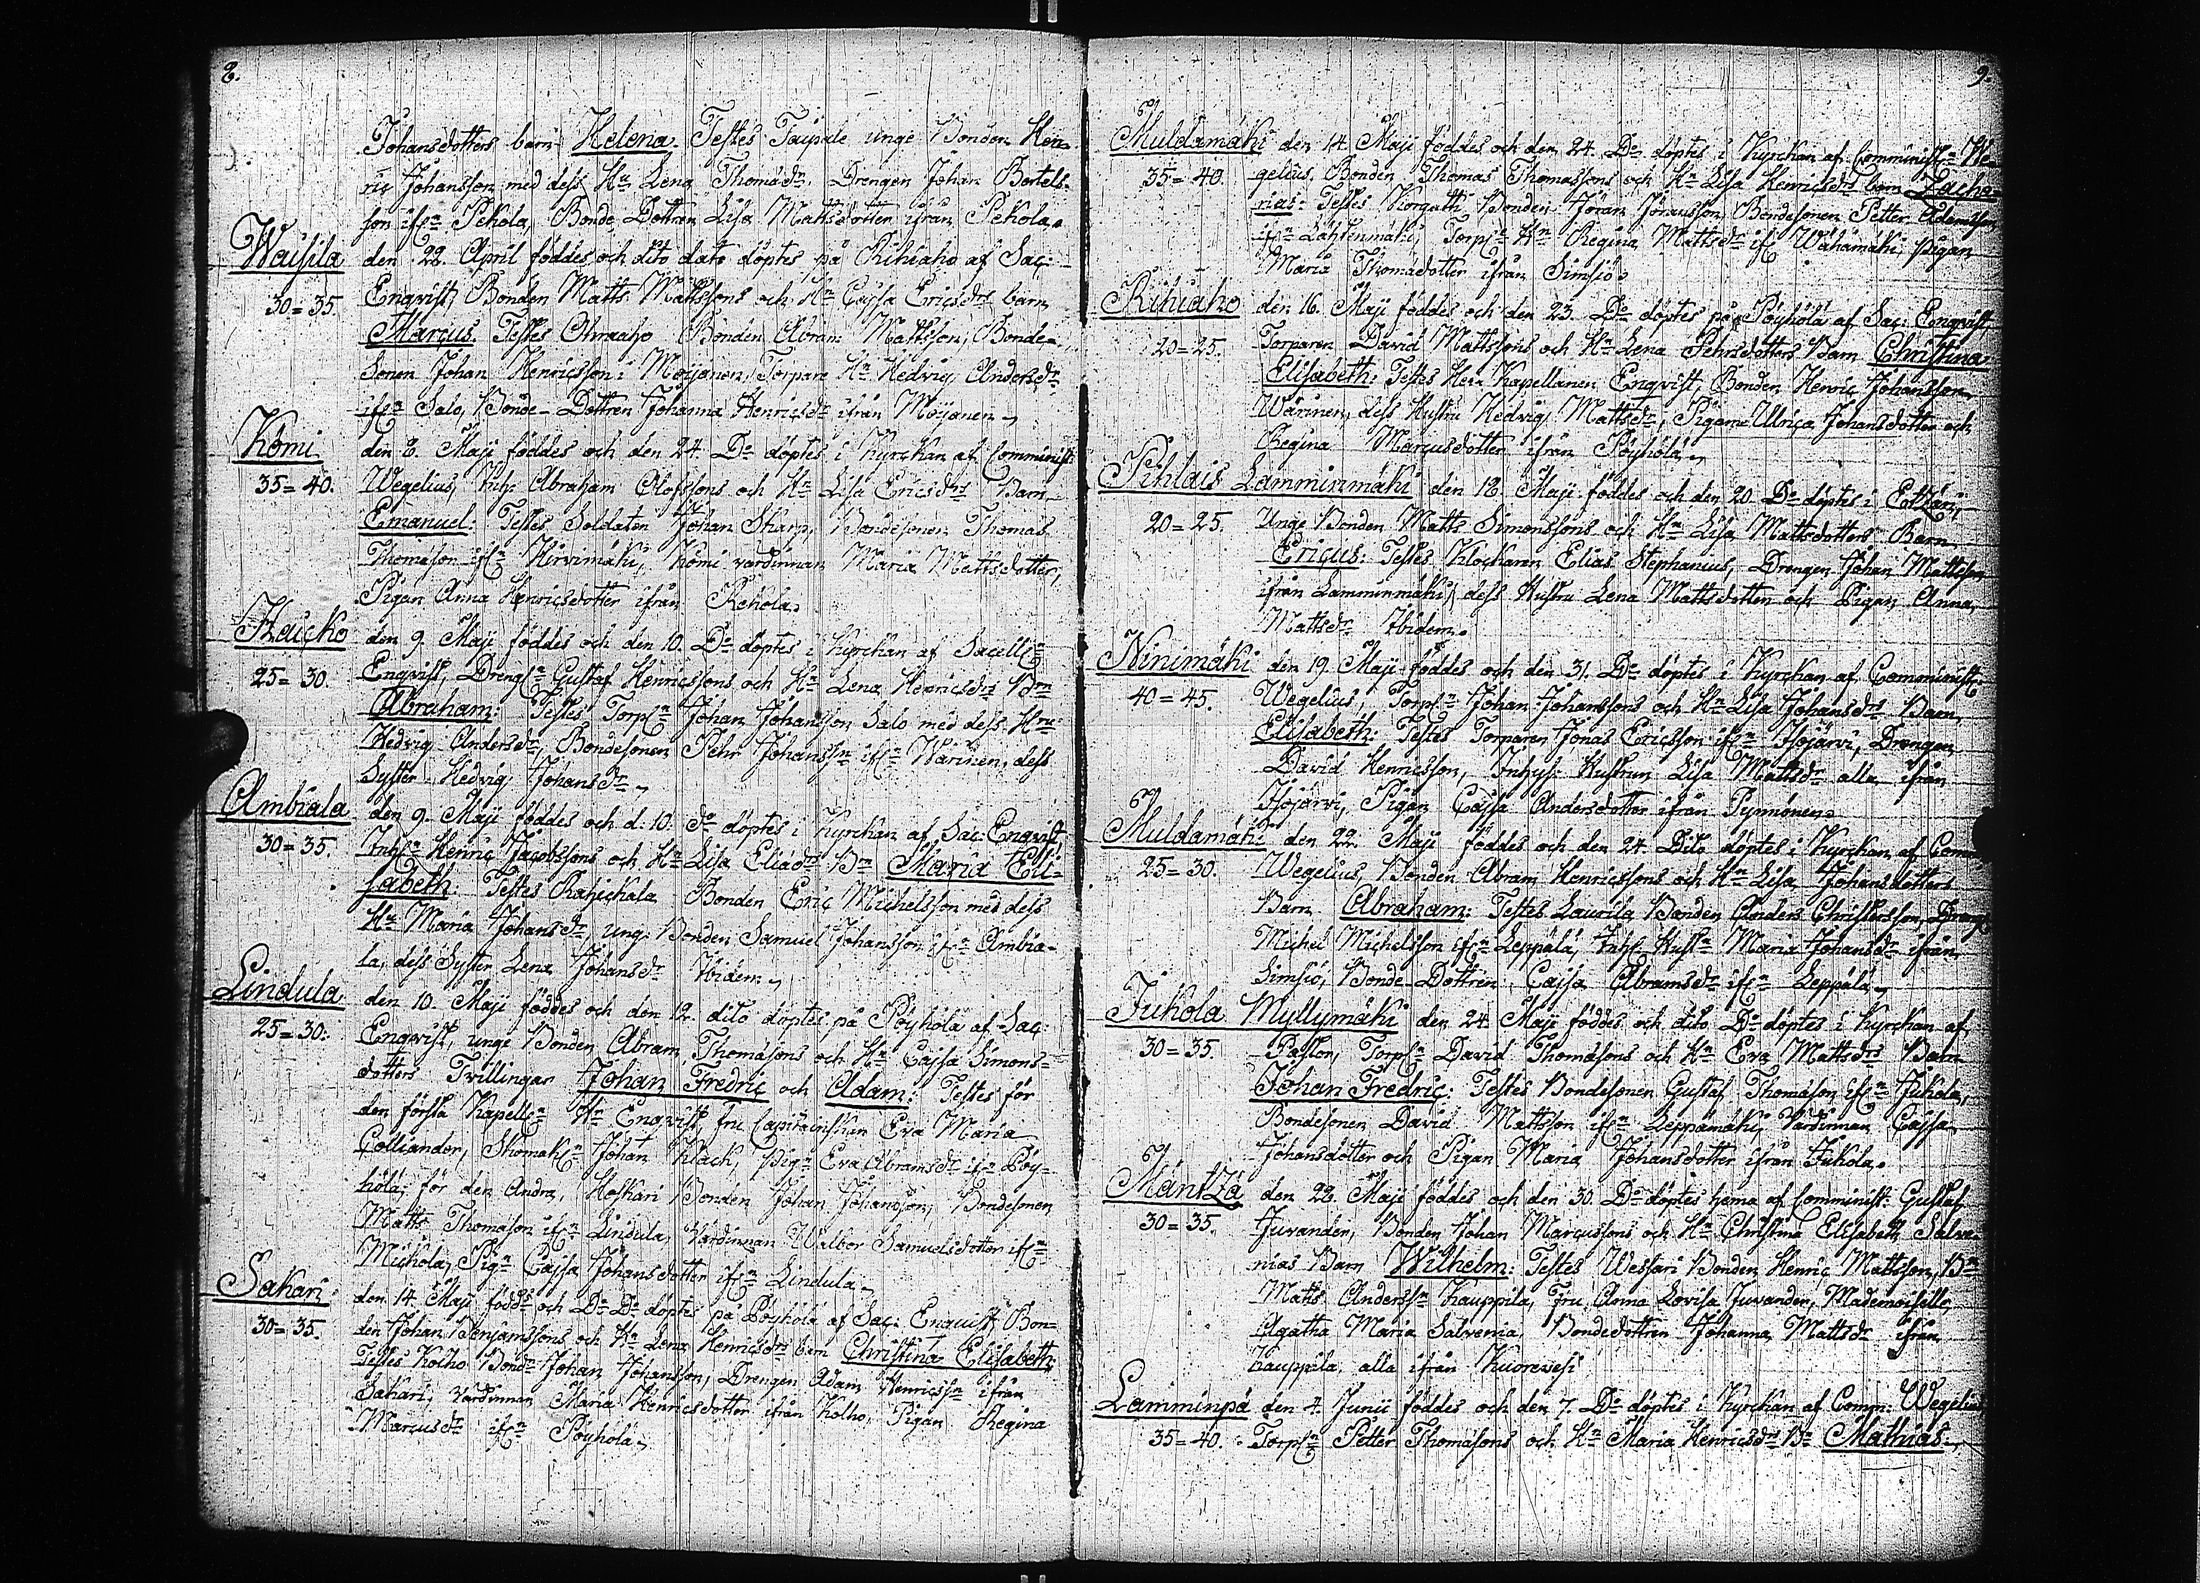 8.
Johansdotters barn Helena. Testes Taipale unge Bonden Hen-
ric Johansson med dess Hu Lena Thomædr. Drengen Johan Bertels-
son ifrn Pekola, Bonde Dottren Lisa Mattsdotter ifrån Pekola.
Waisila den 22. April föddes och dito dato döptes på Rihiaho af Sac:
30=35. Enqvist, Bonden Matts Mattssons och Hn Cajsa Ericsdrs barn
Marcus. Testes Ohraaho Bonden Abram Mattsson, Bonde-
Sonen Johan Henricsson i Moijanen, Torpare Hn Hedvig Andersdr
ifrn Salo, Bonde-Dottren Johanna Henricsdr ifrån Moijanen.
Komi den 8. Maji föddes och den 24. Do döptes i Kyrckan af Comminist:
35=40. Wegelius, Inh: Abraham Olofssons och Hn Lisa Ericsdrs Barn
Emanuel. Testes Soldaten Johan Skarp, Bondesonen Thomas
Thomason ifrn Hirvimäki, Komi värdinnan Maria Mattsdotter,
Pigan Anna Henricsdotter ifrån Rehola.
Haicko den 9. Maji föddes och den 10. Do döptes i Kyrckan af Sacelln
25=30. Enqvist, Drengn Gustaf Henricssons och Hn Lena Henricsdrs Brn
Abraham: Testes Torpn Johan Johansson Salo med dess Hru:
Hedvig Andersdr, Bondesonen Pehr Johanssn ifrn Warinen, dess
Syster Hedvig Johansdr.
Ambiala den 9. Maji föddes och d. 10. do döptes i Kyrckan af Sac: Enqvist,
30=35. Inhn Henric Jacobssons och Hn Lisa Eliædrs Brn Maria Eli-
sabeth. Testes Rajickala Bonden Eric Michelsson med dess
Hn Maria Johansdr, unge Bonden Samuel Johansson ifrn Ambia-
la, dess Syster Lena Johansdr Ibidem.
Lindula den 10. Maji föddes och den 12. dito döptes på Pöyhölä af Sac:
25=30. Enqvist, unge Bonden Abram Thomasons och Hn Cajsa Simons-
dotters Tvillingar Johan Fredric och Adam: Testes för
den första Kapelln Hr Enqvist, fru Capitainskan Eva Maria
Colliander, Skomakn Johan Klack, Pign Eva Abramsdr ifrn Pöy-
hölä; för den Andra, Hoskari Bonden Johan Johansson, Bondesonen
Matts Thomason ifrn Lindula, Värdinnan Walbor Samuelsdotter ifrn
Michola, Pign Cajsa Johansdotter ifrn Lindula.
Sakari den 14. Maji födds och Do Do döptes på Pöyhölä af Sac: Enqvist, Bon-
30=35. den Johan Benjamssons och Hn Lena Henricsdrs barn Christina Elisabeth.
Testes Kolho Bondn Johan Johansson, Drengen Adam Henricssn ifrån
Sakari, Värdinnan Maria Henricsdotter ifrån Kolho, Pigan Regina
Marcusdr ifrn Pöyhölä.
9.
Muldamäki den 14. Maji föddes och den 24. Do döptes i Kyrckan af Comministn We-
35=40. gelius, Bonden Thomas Thomassons och Hn Lisa Henricsdrs barn Zacha-
rias: Testes Korgatti Bonden Jöran Joransson, Bondesonen Petter Adamsson
ifrn Lähtenmäki, Torpn Hn Regina Mattsdr ifrn Wähämäki, Pigan
Maria Thomædotter ifrån Simsiö.
Rihiaho den 16. Maji föddes och den 23. Do döptes på Pöyhölä af Sac: Enqvist,
20=25. Torparen David Mattssons och Hn Lena Pehrsdotters Barn Christina
Elisabeth: Testes Herr Kapellanen Enqvist, Bonden Henric Johansson
Wärinen, dess Hustru Hedvig Mattsdr, Pigorne Ulrica Johansdotter och
Regina Marcusdotter ifrån Pöyhölä.
Pihlais Lamminmäki den 18. Maji föddes och den 20. Do döptes i Etzäri,
20=25. Unge Bonden Matts Simonssons och Hn Lisa Mattsdotters Barn
Ericus: Testes Klockaren Elias Stephanius, Drengen Johan Mattsson
ifrån Lamminmäki, dess Hustru Lena Mattsdotter och Pigan Anna
Mattsdr Ibidem.
Ninimäki den 19. Maji föddes och den 31. Do döptes i Kyrckan af Comminist:
40=45. Wegelius, Torpn Johan Johanssons och Hn Lisa Johansdrs Barn
Elisabeth: Testes Torparen Jonas Ericsson ifrn Isojärvi, Drengen
David Henricsson, Inhys: Hustrun Lisa Mattsdr alla ifrån
Isojärvi, Pigan Cajsa Andersdotter ifrån Pynnönen.
Muldamäki den 22. Maji föddes och den 24. Dito döptes i Kyrckan af Comm:
25=30. Wegelius, Bonden Abram Henricssons och Hn Lisa Johansdotters
Barn Abraham: Testes Laurila Bonden Anders Christersson, Dreng
Michel Michelsson ifrn Leppälä, Inh: Hustn Maria Johansdr ifrån
Simsiö, Bonde-Dottren Cajsa Abramsdr ifrn Leppälä.
Jukola Myllymäki den 24. Maji föddes och dito Do döptes i Kyrckan af
30=35. Paston, Torpn David Thomasons och Hn Eva Mattsdrs Barn
Johan Fredric: Testes Bondesonen Gustaf Thomason ifrn Jukola,
Bondesonen David Mattsson ifrn Leppämäki, Värdinnan Cajsa
Johansdotter och Pigan Maria Johansdotter ifrån Jukola.
Mäntzä den 28. Maji föddes och den 30. Do döptes hema af Comminist: Gustaf
30=35. Juvander, Bonden Johan Marcussons och Hn Christina Elisabeth Salve-
nias Barn Wilhelm: Testes Wessari Bonden Henric Mattsson, Bn
Matts Anderssn Kauppila, Fru Anna Lovisa Juvander, Mademoiselle
Agatha Maria Salvenia, Bondedottren Johanna Mattsdr ifrån
Kauppila, alla ifrån Kuorevesi
Lamminpä den 4. Junii föddes och den 7. Do döptes i Kyrckan af Comm: Wegelius
35=40. Torpn Petter Thomasons och Hn Maria Henricsdrs Bn Mathias.